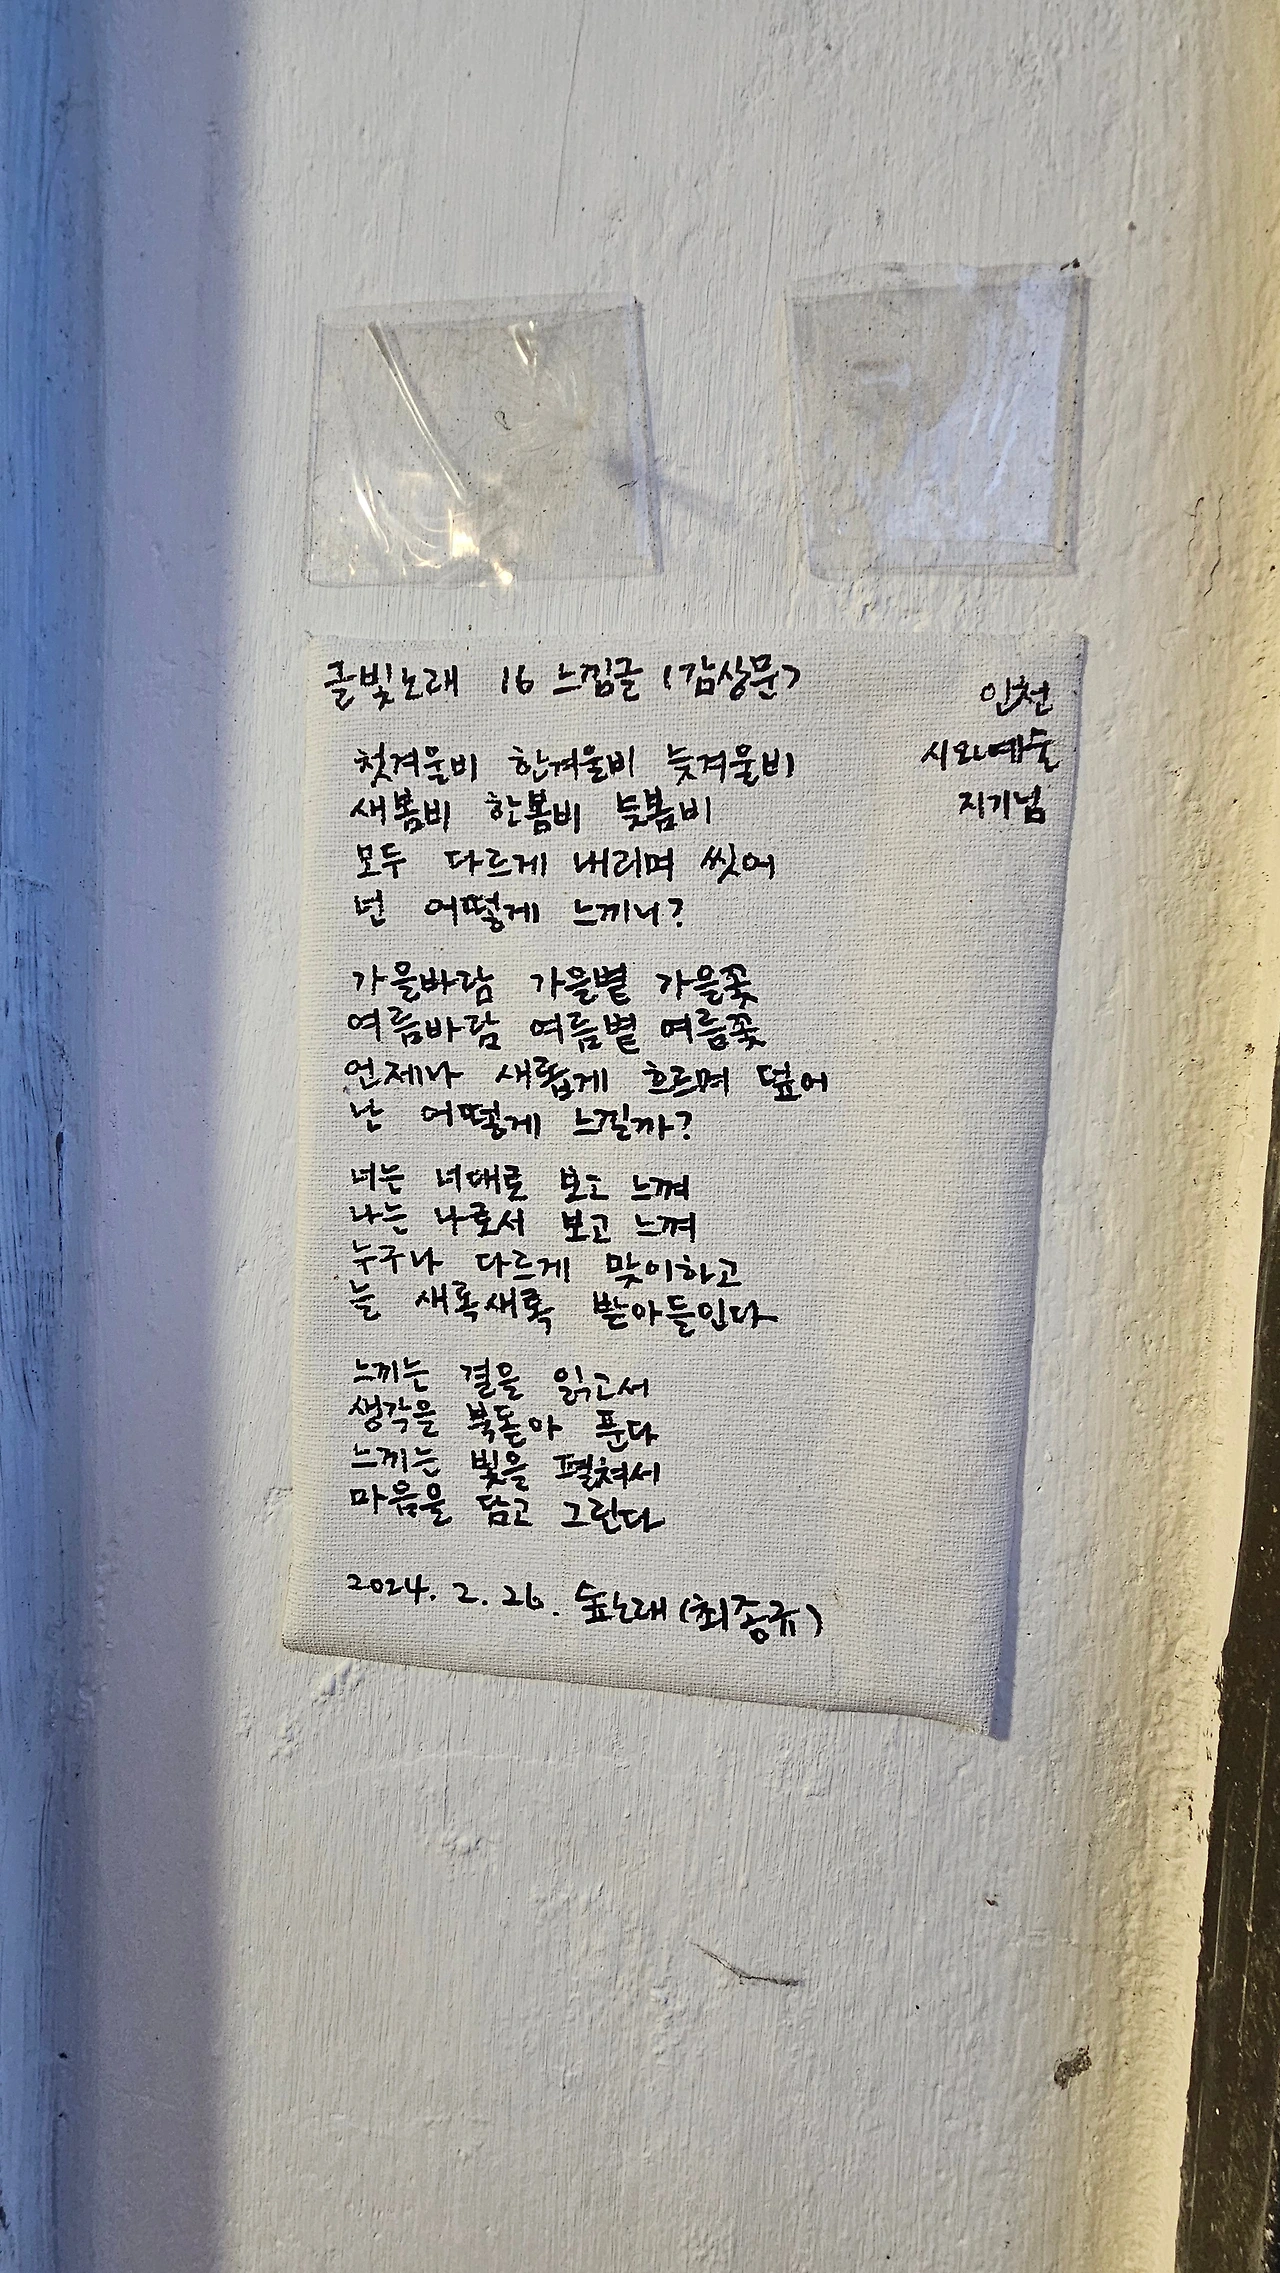 글빛노래 16 느낌글 (감상문)
인천
시와예술
지기님
첫겨울비 한겨울비 늦겨울비
새봄비 한봄비 늦봄비
모두 다르게 내리며 씻어
넌 어떻게 느끼니?
가을바람 가을볕 가을꽃
여름바람 여름볕 여름꽃
언제나 새롭게 흐르며 덮어
난 어떻게 느낄까?
너는 너대로 보고 느껴
나는 나로서 보고 느껴
누구나 다르게 맞이하고
늘 새록새록 받아들인다
느끼는 결을 읽고서
생각을 북돋아 푼다
느끼는 빛을 펼쳐서
마음을 담고 그린다
2024. 2. 26. 숲노래 (최종규)